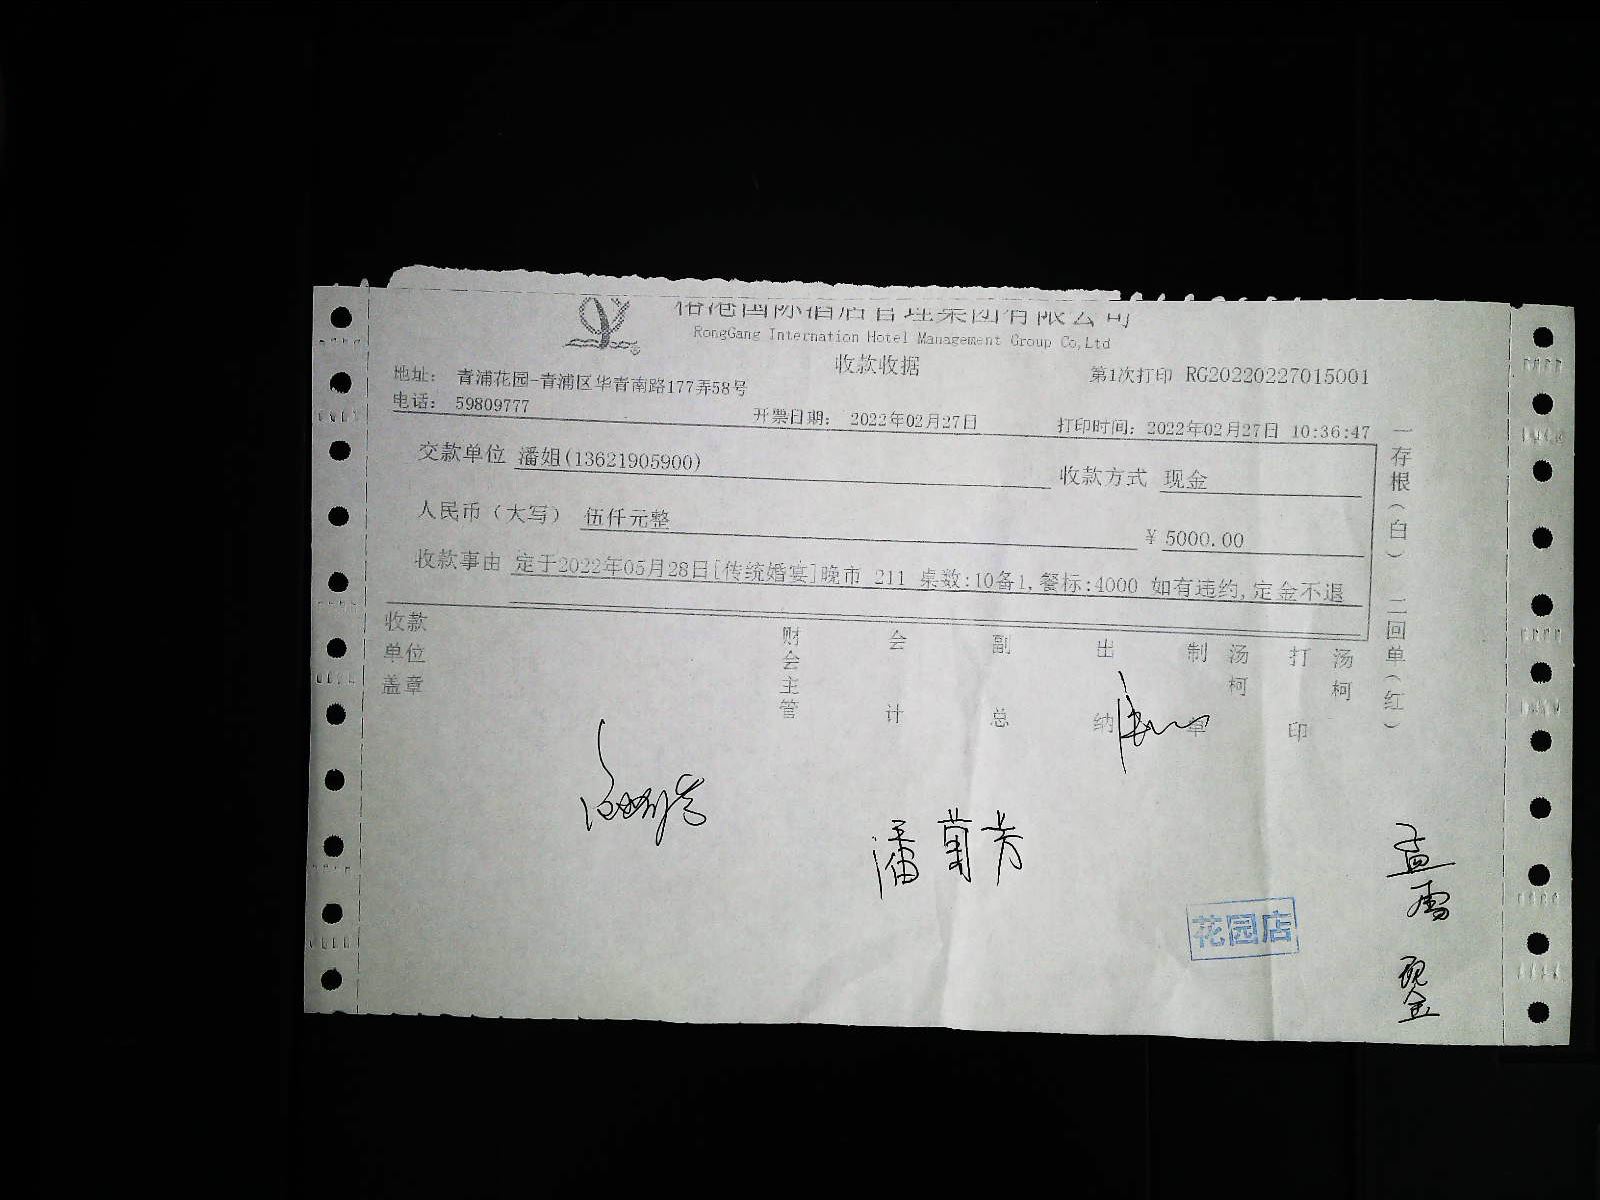 裕港国际酒店管理集团有限公司
RongGang Internation Hotel Management Group Co,Ltd
收款收据
第1次打印 RG20220227015001
地址： 青浦花园-青浦区华青南路177弄58号
电话： 59809777
开票日期： 2022年02月27日
打印时间：2022年02月27日 10:36:47
交款单位 潘姐(13621905900)
收款方式 现金
人民币（大写） 伍仟元整
¥ 5000.00
收款事由 定于2022年05月28日[传统婚宴]晚市 211 桌数:10备1,餐标:4000 如有违约,定金不退
收款单位盖章
财会主管
会计
副总
出纳
制单
汤柯
打印
汤柯
一存根（白） 二回单（红）
潘菊芳
花园店
孟雪
现金